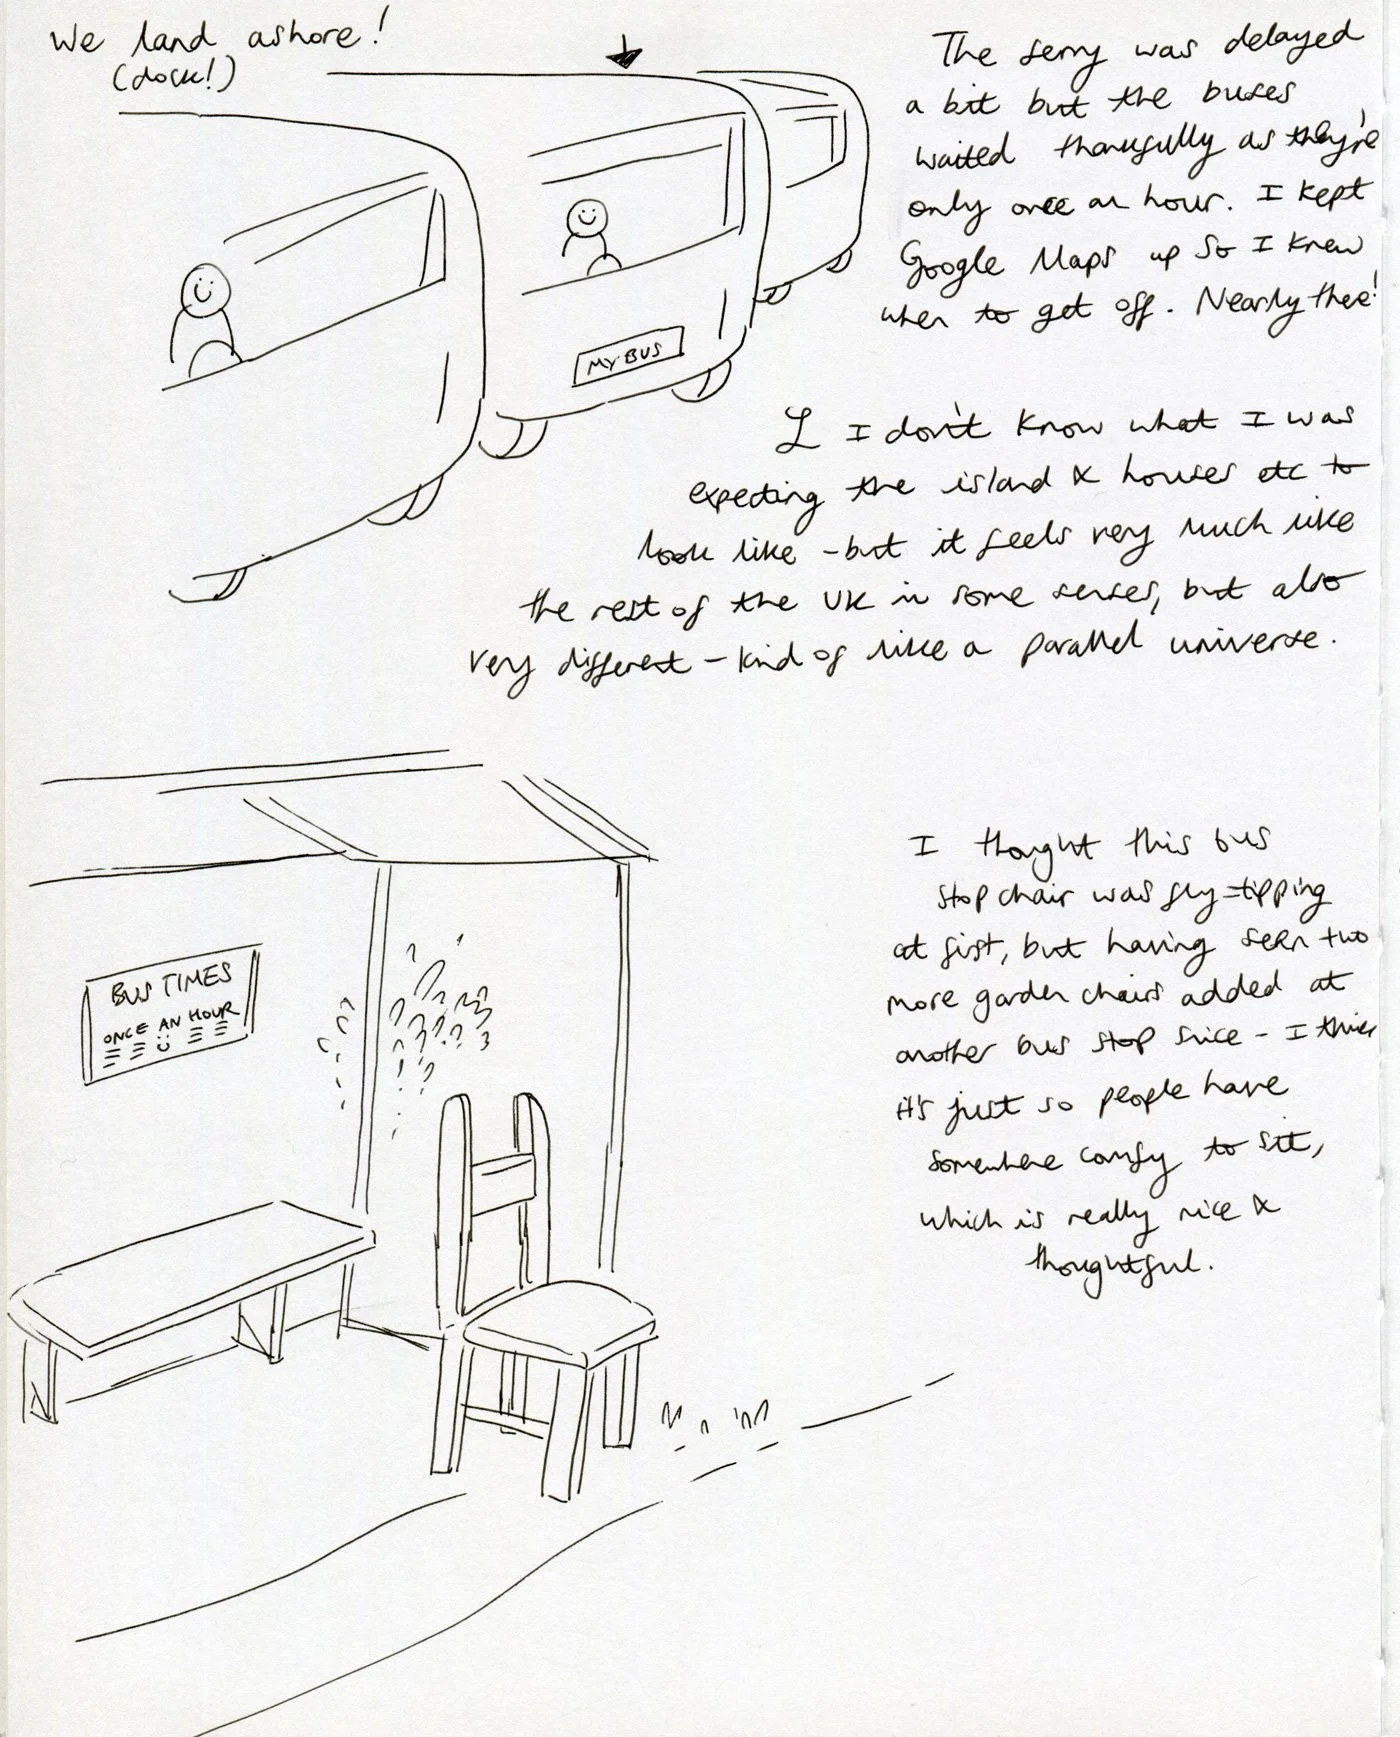 We land ashore!
(dock!)
The ferry was delayed
a bit but the buses
waited thankfully as they're
only once an hour. I kept
Google Maps up so I knew
when to get off. Nearly there!
MY BUS
I don't know what I was
expecting the island & houses etc to
look like - but it feels very much like
the rest of the UK in some senses, but also
very different - kind of like a parallel universe.
BUS TIMES
ONCE AN HOUR
I thought this bus
stop chair was fly-tipping
at first, but having seen two
more garden chairs added at
another bus stop since - I think
it's just so people have
somewhere comfy to sit,
which is really nice &
thoughtful.